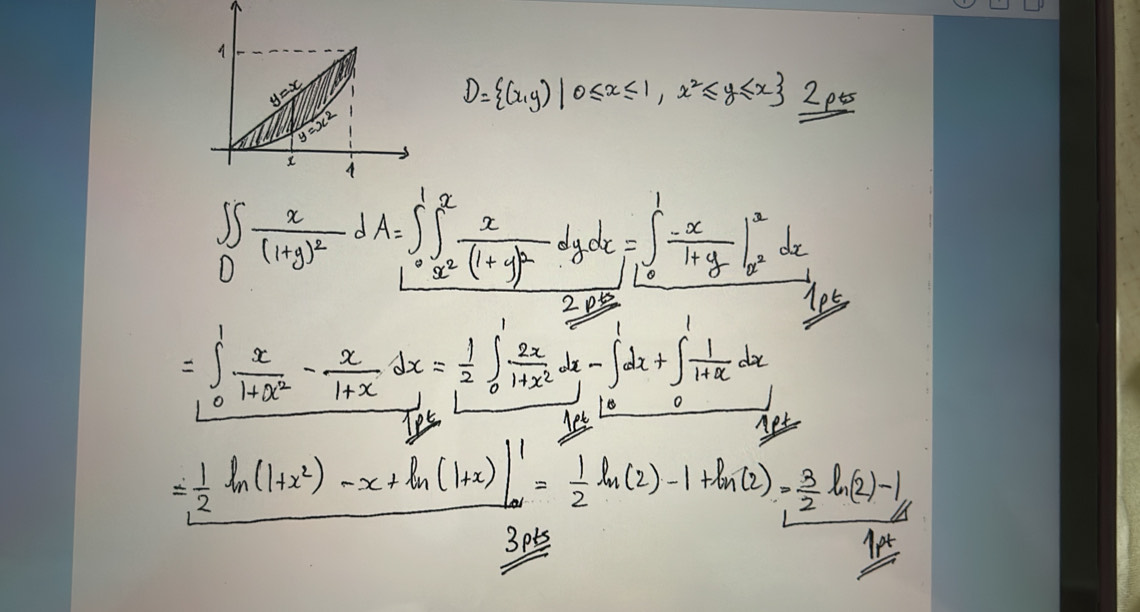 1
y=x
y=x²
x
1
D={(x,y) | 0≤x≤1, x²≤y≤x} 2pts
∬_D x/(1+y)² dA = ∫_0^1 ∫_{x²}^x x/(1+y)² dy dx = ∫_0^1 -x/(1+y) |_{x²}^x dx
2pts 1pt
= ∫_0^1 x/(1+x²) - x/(1+x) dx = 1/2 ∫_0^1 2x/(1+x²) dx - ∫_0^1 dx + ∫_0^1 1/(1+x) dx
1pt 1pt 1pt
= 1/2 ln(1+x²) - x + ln(1+x) |_0^1 = 1/2 ln(2) - 1 + ln(2) = 3/2 ln(2) - 1
3pts 1pt